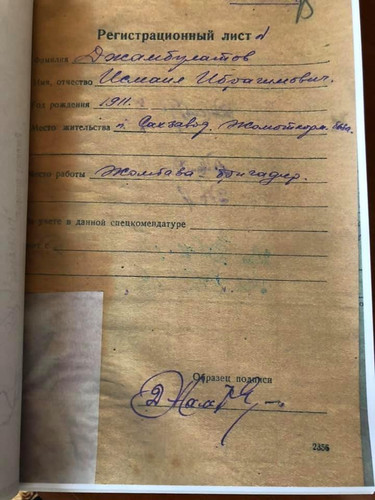 Регистрационный лист
Фамилия Джамбулатов
Имя, отчество Исмаил Ибрагимович.
Год рождения 1911.
Место жительства п. Сахзавод,
место работы бригадир.
на учете в данной спецкомендатуре
Образец подписи
2356